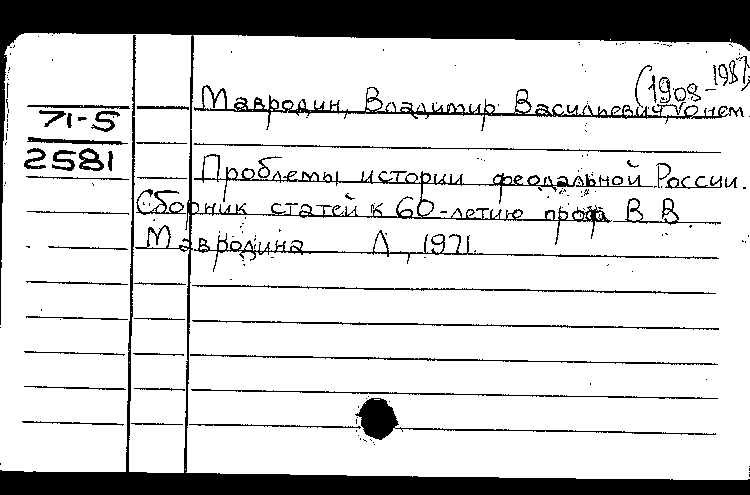 (1908-1987)
Мавродин, Владимир Васильевич, о нем.
71-5
2581
Проблемы истории феодальной России.
Сборник статей к 60-летию проф. В. В.
Мавродина. Л., 1971.